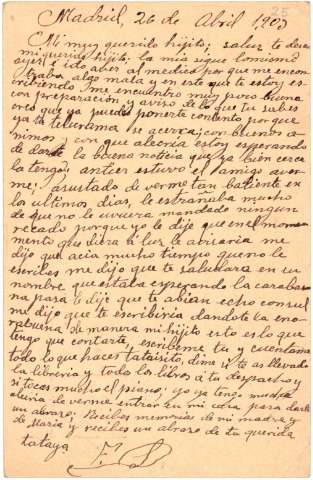 Madrid, 26 de Abril, 1909
25
Mi muy querido hijito; salud te desea
mi querido hijito. la mia sigue lo mismo
ayer e ido ados al medico por que me encon
traba algo mala y en este que te estoy es
cribiendo me encuentro muy pero buena
con preparazion y aviso de lo que tu sabes
creo que ya puedes ponerte contento por que
ya tu telurama se acerca; con buenos a
nimos, con que alecria estoy esperando
de darte la buena noticia que ya bien cerca
la tengo; antier estuvo el amigo a ver
me; asustado de verme tan baliente en
los ultimos dias, le estrañaba mucho
de que no le uviera mandado ningun
recado porque yo le dije que en el mome
mento que diera a luz le avisaria me
dijo que acia mucho tiempo que no le
escribes me dijo que te saludara en su
nombre que estaba esperando la caraba
na para le dije que te abian echo consul
me dijo que te escribiria dandote la eno
rabuena, de manera mi hijito esto es lo que
tengo que contarte, escribeme tu y cuentame
todo lo que haces tataisito, dime si te as llevado
la libreria y todo los libros a tu despacho y
si tocas mucho el piano; yo ya tengo mucha
aleria de verme entrar en mi casa para darte
un abrazo; Recibes memorias de mi madre y
de Maria y recibes un abrazo de tu querida
tataya
F. S.